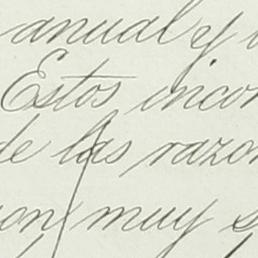 anual y
Estos incon
de las razon
on muy s